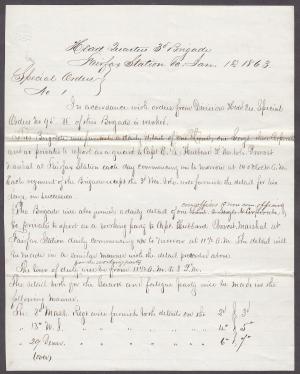 Head Quarters 3d Brigade
Fairfax Station Va. Jan. 1st 1863
Special Orders
No 1
In accordance with orders from Division Head Qrs. Special
Orders No 95 of this Brigade is revoked.
The Brigade will furnish a daily detail of one
and privates to report as a guard to Capt Hubbard Provost
Marshal at Fairfax Station each day commencing on to morrow at 10 o'clock A.M.
Each regiment of the Brigade except the 3d Wis. Vols. will furnish the detail for
days in succession
The Brigade will also furnish a daily detail of one
be formed to report as a working party to Capt. Hubbard Provost Marshal at
Fairfax Station daily commencing on to morrow at 11 A.M. The detail will
be made in a similar manner with the detail provided above.
for the working party
The hours of duty will be from 11 A.M. to 3 P.M.
The detail both for the Guard and fatigue party will be made in the
following manner.
The 2d Mass. Regt will furnish both details on the 2d & 3d
" 13th N.J. " " " " " " 4th & 5th
" 29 Penn. " " " " " " 6th & 7th
(over)